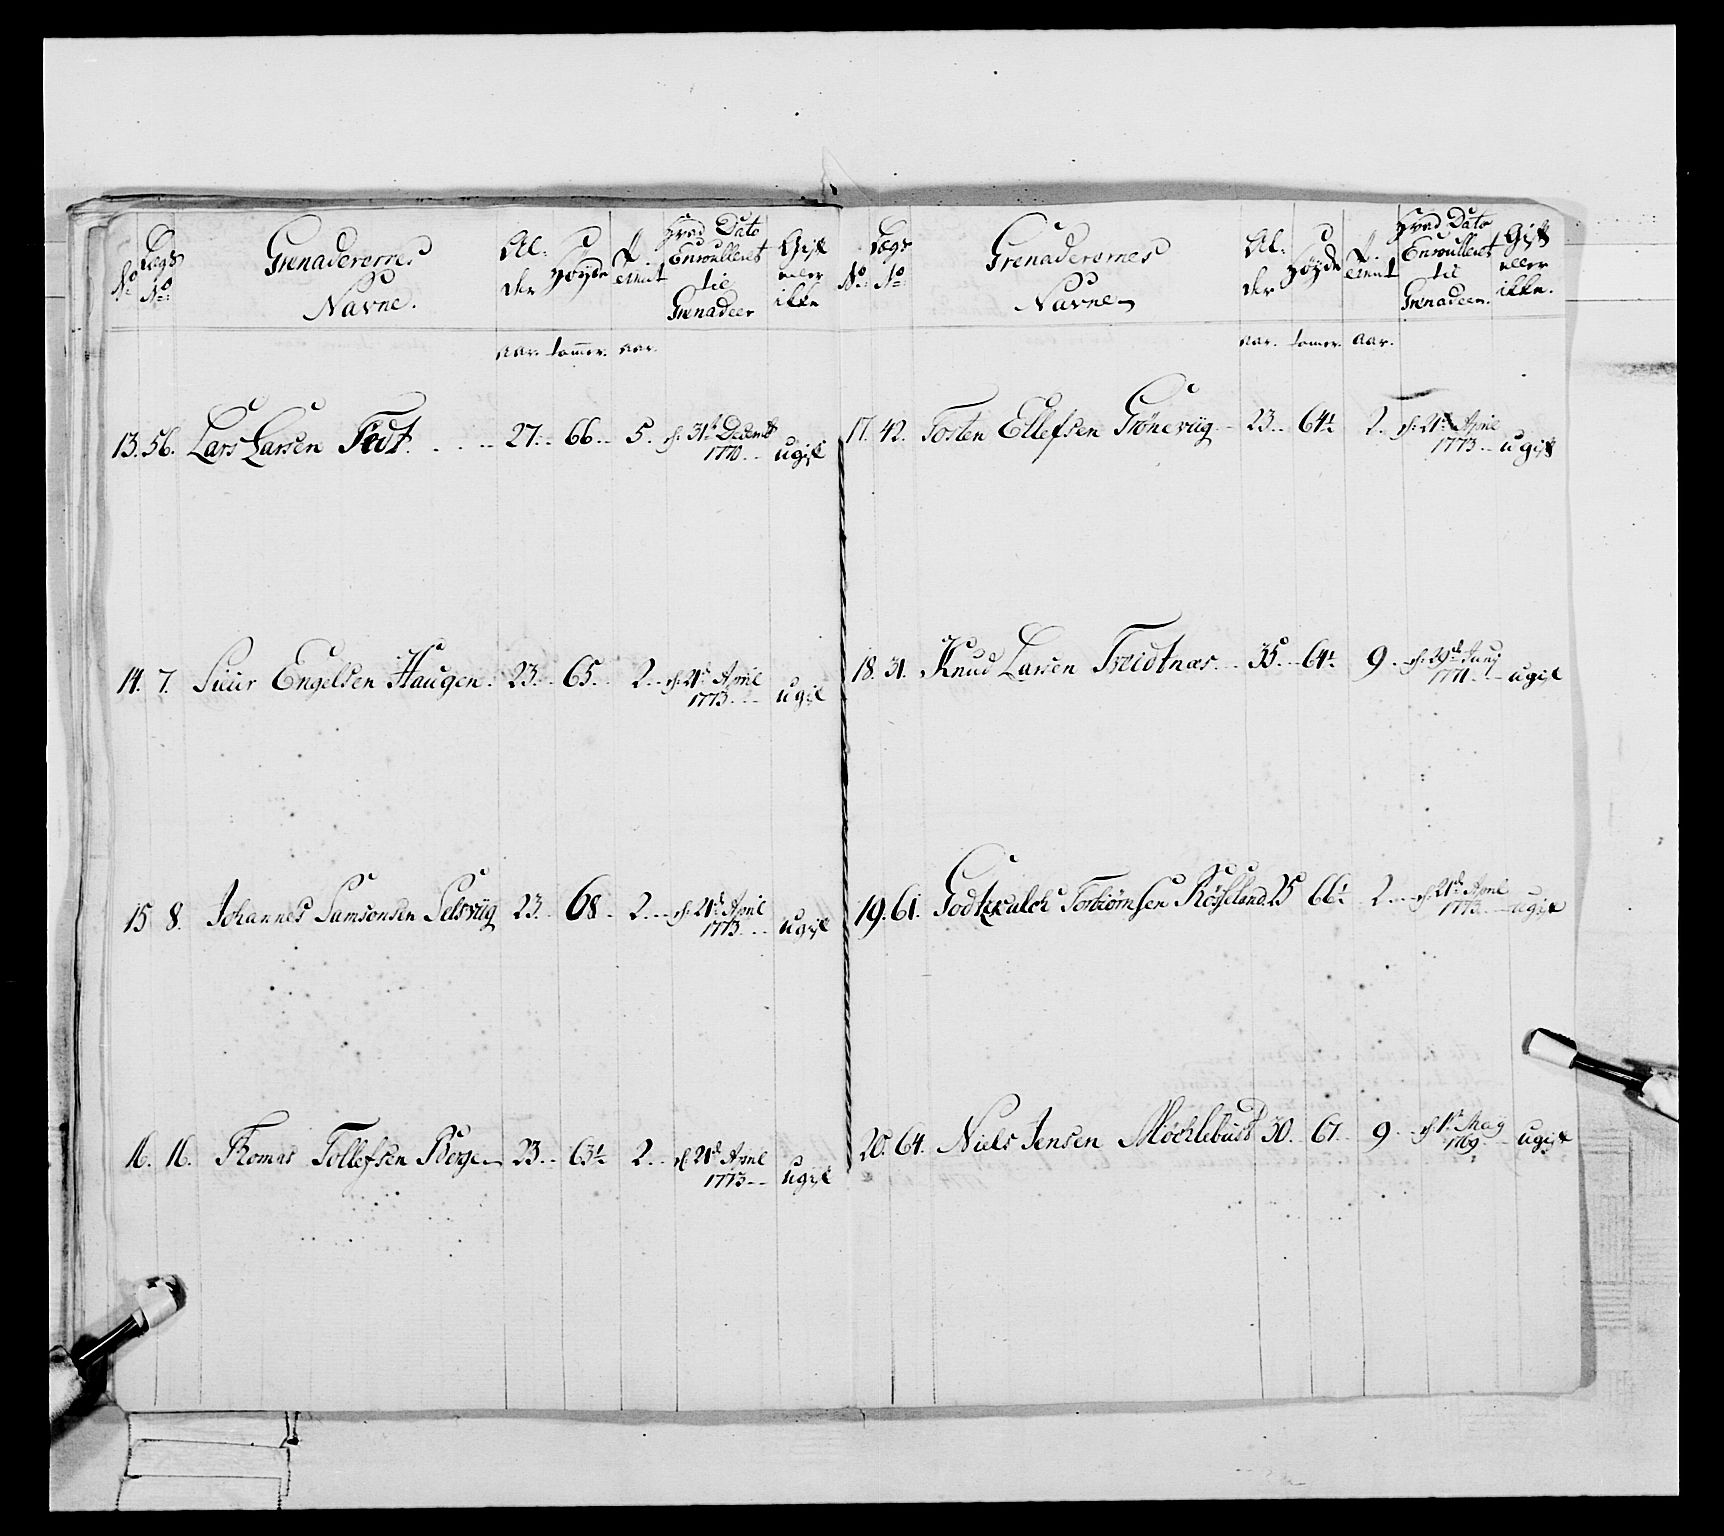 No Lægs No
Grenaderernes Navne.
Al: der
Høyde
Tienist
Hvad Dato Enroulleret til Grenadeer
Gift eller ikke
aar. tommer. aar.
13. 56. Lars Larsen Tvedt. 27. 66. 5. d. 31te Decembr 1770. ugift
14. 7. Siur Engelsen Haugen. 23. 65. 2. d. 21de April 1773. ugift
15. 8. Johannes Samsonsen Selsviig 23. 68. 2. d. 21de April 1773. ugift
16. 16. Thomas Tollefsen Berge 23. 63½ 2. d. 21de April 1773 ugift
No: Lægs No
Grenaderernes Navne
Al: der
Høyde
Tienist
Hvad Dato Enroulleret til Grenadeer.
Gift eller ikke.
aar. tomer. aar.
17. 42. Tosten Ellefsen Grøneviig. 23. 64½ 2. d. 21de April 1773. ugift
18. 31. Knud Larsen Tveidtnæs. 35. 64½ 9. d. 29de Junj 1771. ugift
19. 61. Godtskalch Torbiørnsen Røsseland. 25 66½ 2. d. 21de April 1773. ugift
20. 64. Niels Jensen Møchlebust 30. 67. 9. d. 1te May 1769. ugift